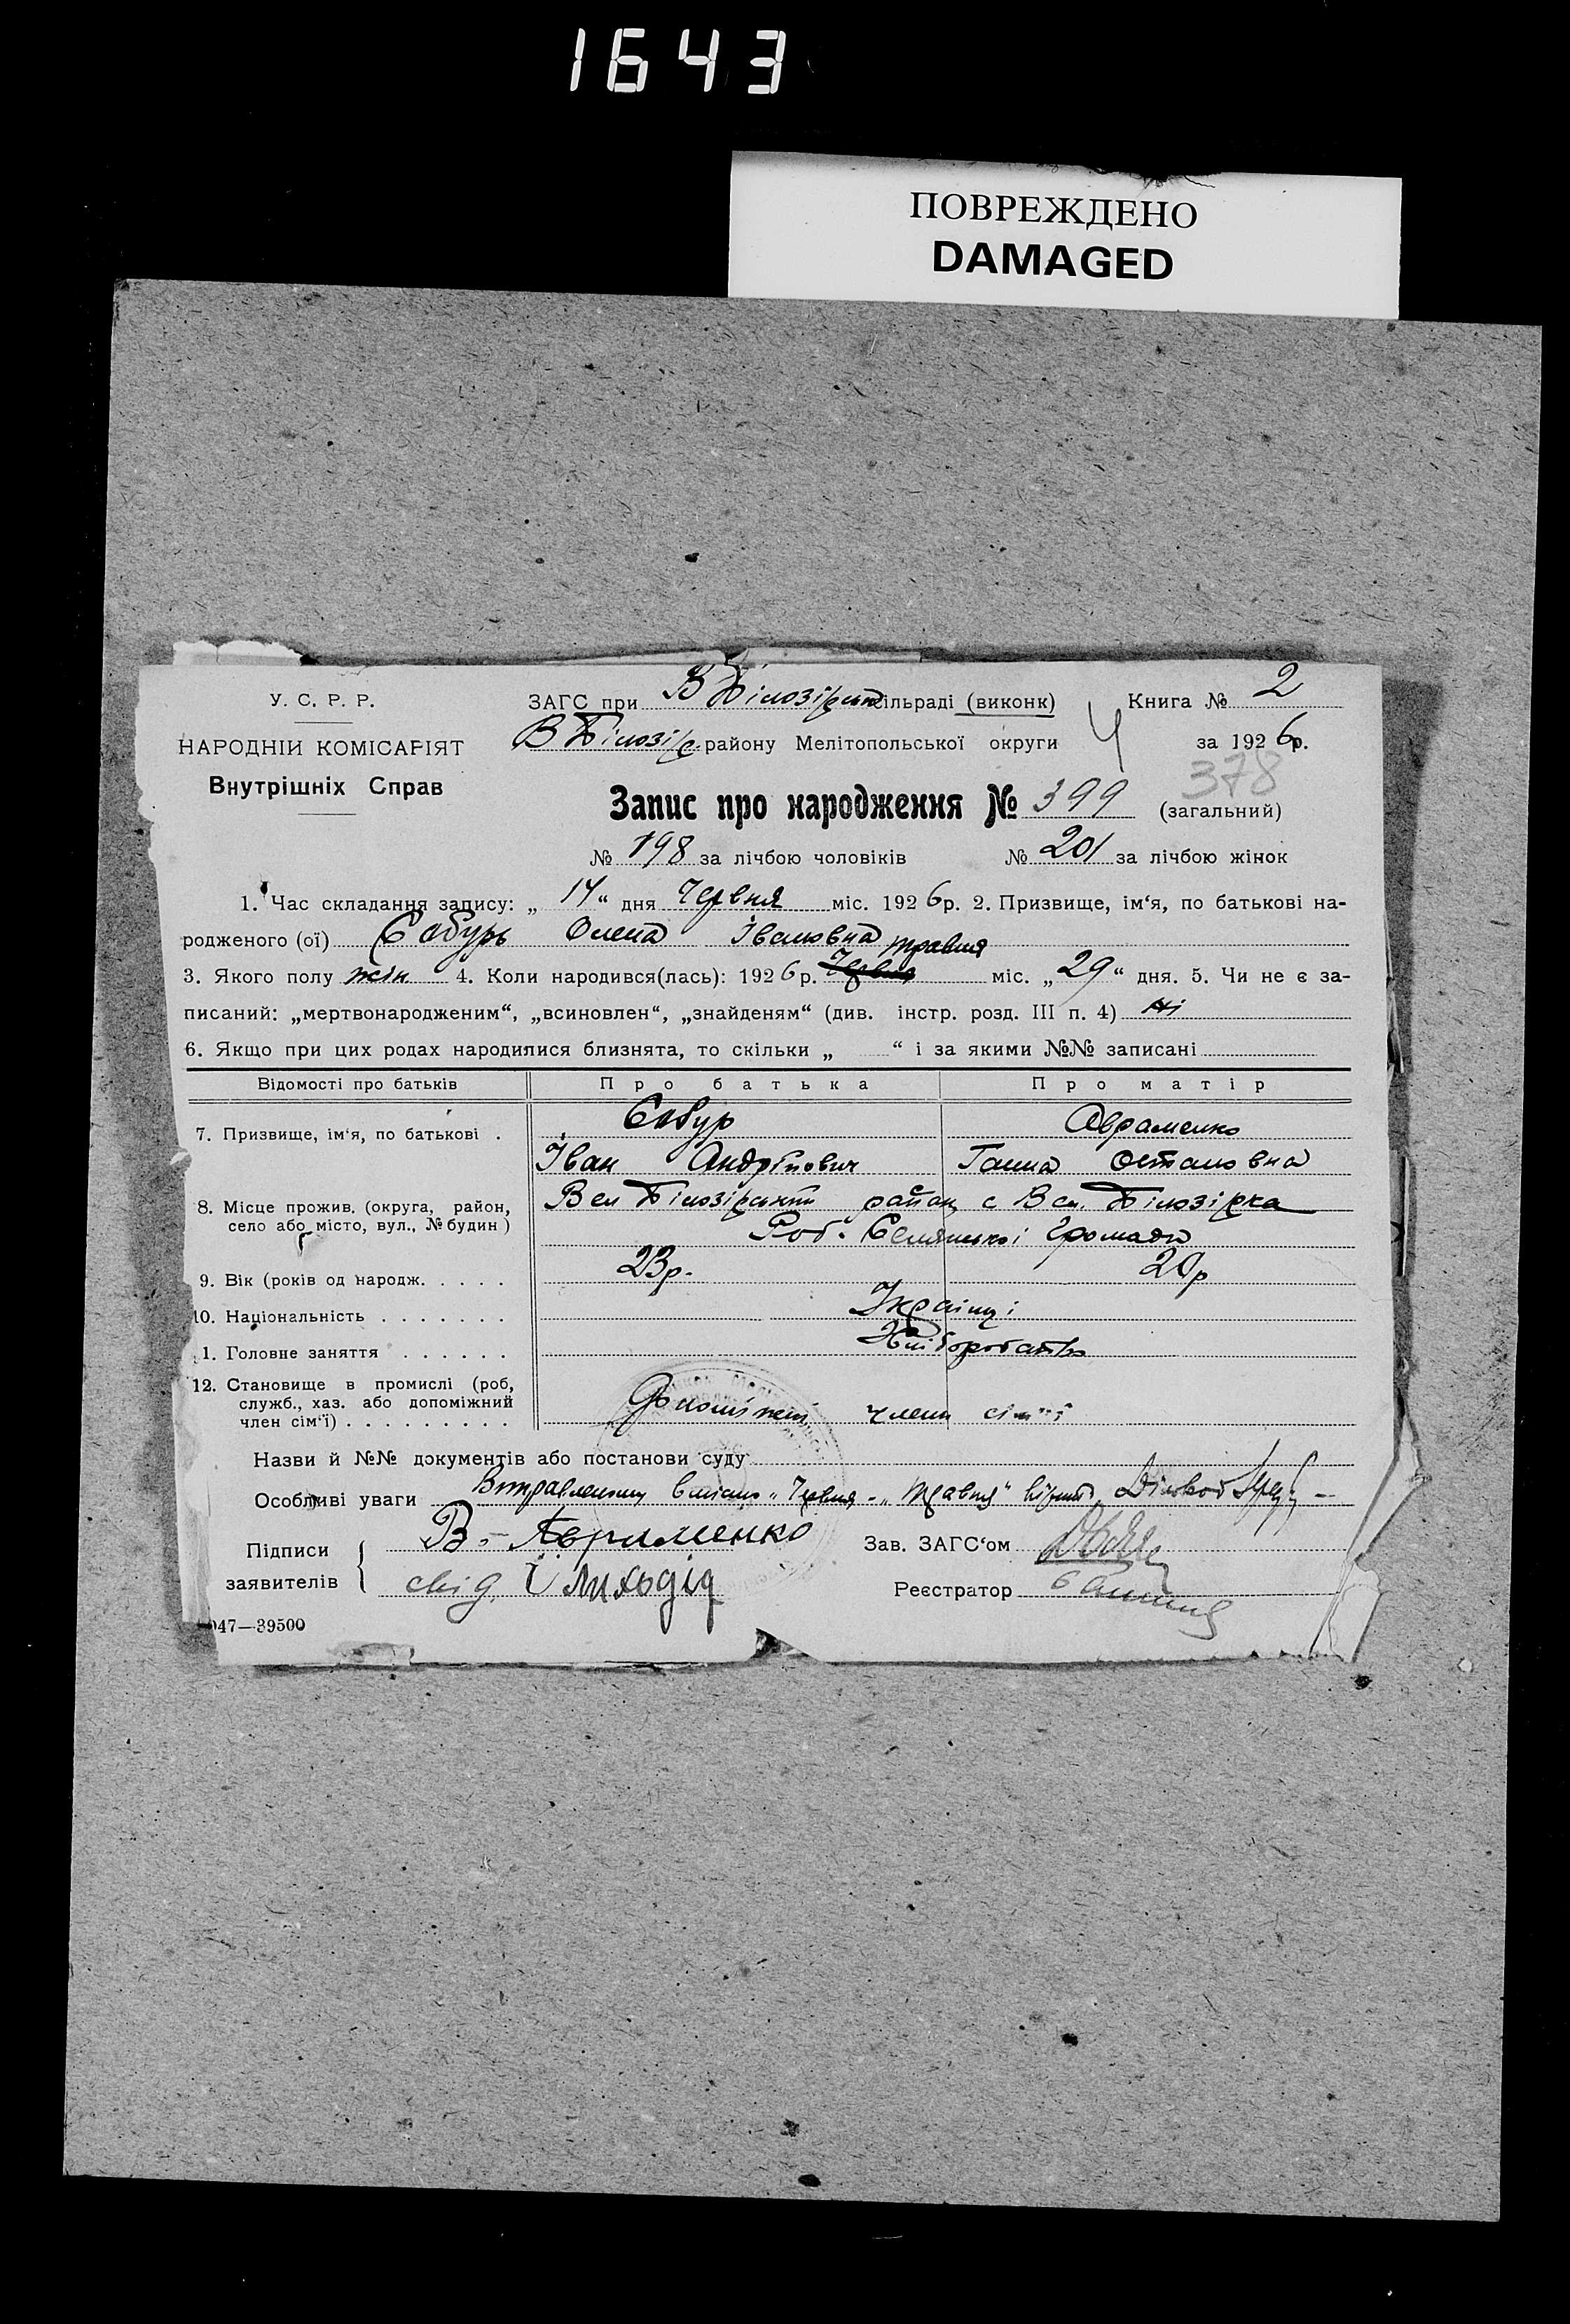 1643
ПОВРЕЖДЕНО
DAMAGED
У. С. Р. Р.
НАРОДНІЙ КОМІСАРІЯТ
Внутрішніх Справ
ЗАГС при В Білозірськ сільраді (виконк) Книга № 2
В Білозір. району Мелітопольської округи Ч за 1926 р.
378
Запис про народження № 399 (загальний)
№ 198 за лічбою чоловіків № 201 за лічбою жінок
1. Час складання запису: „ 14 “ дня Червня міс. 1926 р. 2. Призвище, ім‘я, по батькові на-
родженого (ої) Сабурь Олена Івановна
травня
3. Якого полу жін 4. Коли народився(лась): 1926 р. Червня міс. „ 29 “ дня. 5. Чи не є за-
писаний: „мертвонародженим“, „всиновлен“, „знайденям“ (див. інстр. розд. III п. 4) ні
6. Якщо при цих родах народилися близнята, то скільки „ “ і за якими №№ записані
Відомості про батьків Про батька Про матір
7. Призвище, ім‘я, по батькові . Сабур Авраменко
Іван Андрійович Ганна Остаповна
8. Місце прожив. (округа, район, село або місто, вул., № будин) Вел Білозірський район с Вел. Білозірка
Роб. Селянської Громади
9. Вік (років од народж. . . . . 23 р. 20 р
10. Національність . . . . . . . Українці
1. Головне заняття . . . . . . Хліборобство
12. Становище в промислі (роб, служб., хаз. або допоміжний член сім‘ї) . . . . . . . . . Допоміжні члени сім'ї
Назви й №№ документів або постанови суду
Особливі уваги Виправленому вписано „Червня - „Травня" вірити
Підписи заявителів В. Авраменко
свід. І Лиходід
Зав. ЗАГС‘ом
Реєстратор
047—39500